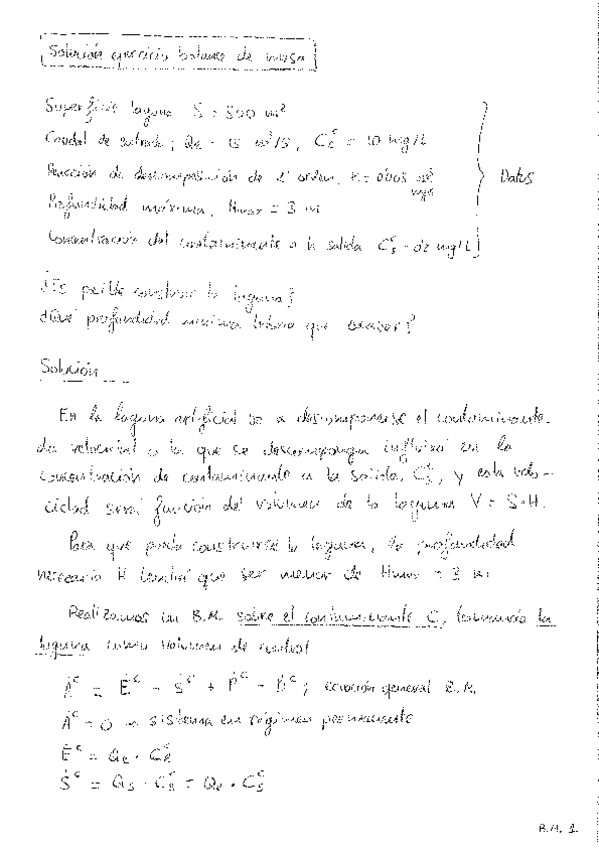 Solución ejercicio balance de masa
Superficie laguna S = 500 m²
Caudal de entrada; Qe = 15 m³/s, C_e^c = 10 mg/L
Reacción de descomposición de 2º orden, K =
Profundidad máxima, Hmax = 3 m
Datos
Concentración del contaminante a la salida C_s^c = 0'2 mg/L
¿Es posible construir la laguna?
¿Qué profundidad mínima habría que excavar?
Solución
En la laguna artificial va a descomponerse el contaminante.
La velocidad a la que se descomponga influirá en la
concentración de contaminante a la salida, C_s^c, y esta velo-
cidad será función del volumen de la laguna V = S·H.
Para que pueda construirse la laguna, la profundidad
necesaria H tendrá que ser menor de Hmax = 3 m.
Realizamos un B.M. sobre el contaminante C, tomando la
laguna como volumen de control
Ȧ^c = Ė^c - Ṡ^c + Ṗ^c - Ḋ^c ; ecuación general B.M.
Ȧ^c = 0 → sistema en régimen permanente
Ė^c = Qe · C_e^c
Ṡ^c = Qs · C_s^c = Qe · C_s^c
B.M. 1